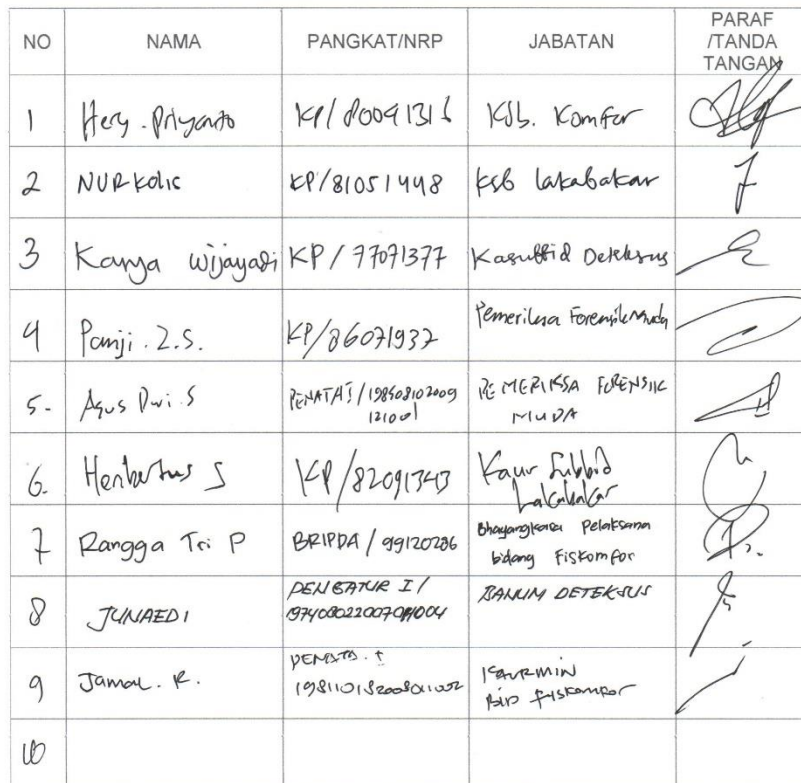 NO NAMA PANGKAT/NRP JABATAN PARAF
/TANDA
TANGAN
1 Hery. Priyanto KP/80091316 KSb. Komfor
2 NURKOLIS KP/81051448 KSb lakabakar
3 Karya Wijayadi KP/77071377 Kasubbid Deteksus
4 Panji. Z.S. KP/86071937 Pemeriksa Forensik Muda
5. Agus Dwi. S PENATA I/198508102009
121001 PEMERIKSA FORENSIK
MUDA
6. Heribertus S KP/82091343 Kaur Subbid
Lakabakar
7 Rangga Tri P BRIPDA/99120286 Bhayangkara Pelaksana
bidang Fiskomfor
8 JUNAEDI PENGATUR I/ BANUM DETEKSUS
9 Jamal. R. PENATA. I KAURMIN
Bid Fiskomfor
10